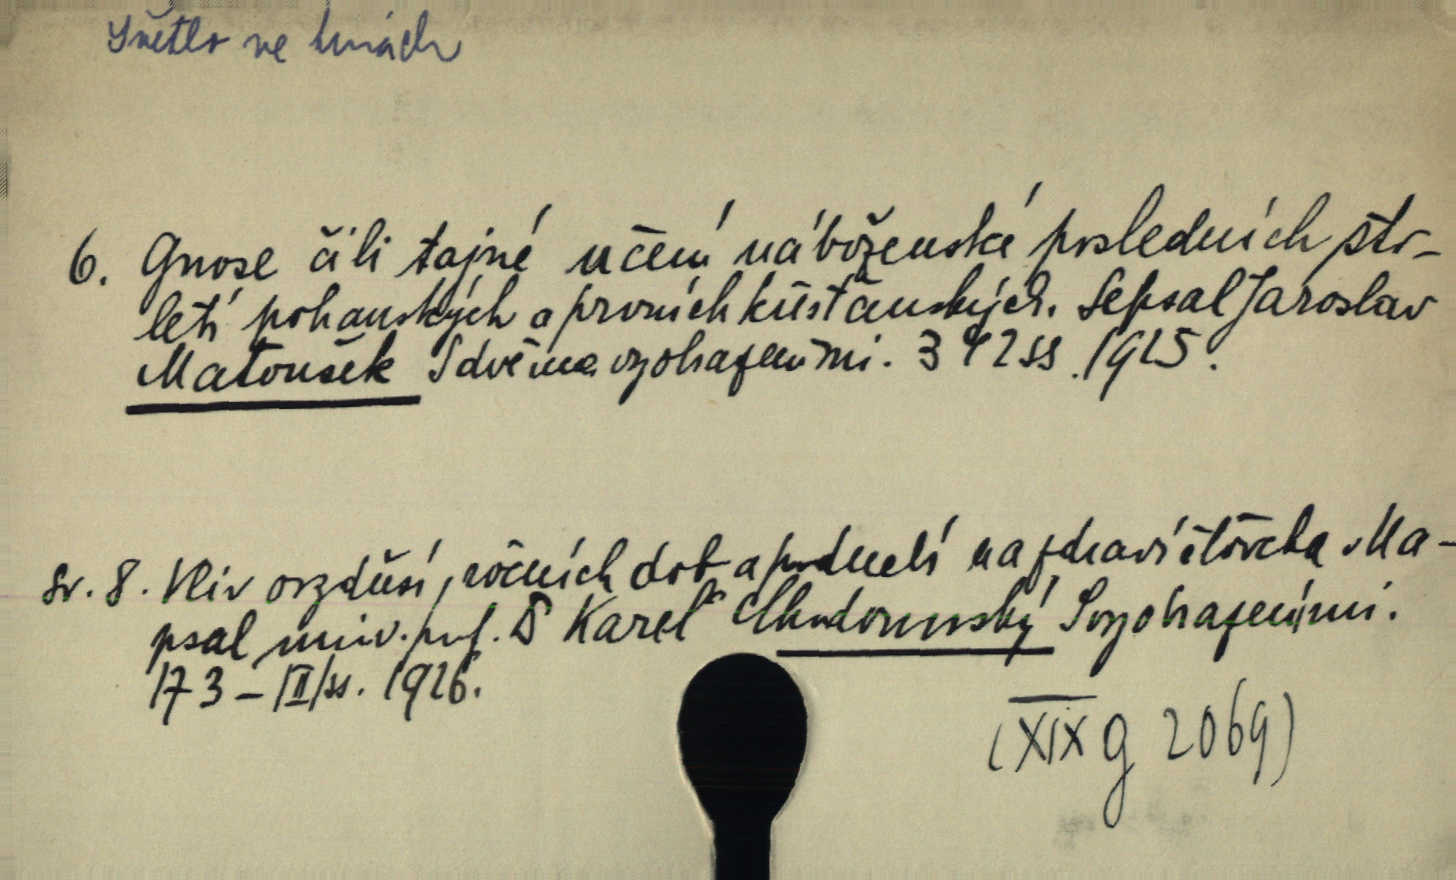 Světlo ve tmách
6. Gnose čili tajné učení náboženské posledních sto-
letí pohanských a prvních křesťanských. Sepsal Jaroslav
Matoušek S dvěma vyobrazeními. 342 ss. 1925.
Sv. 8. Vliv ovzduší, ročních dob a podnebí na zdraví člověka. Na-
psal univ. prof. Dr Karel Chodounský S vyobrazeními.
173 – |II| ss. 1926.
(XIX g 2069)